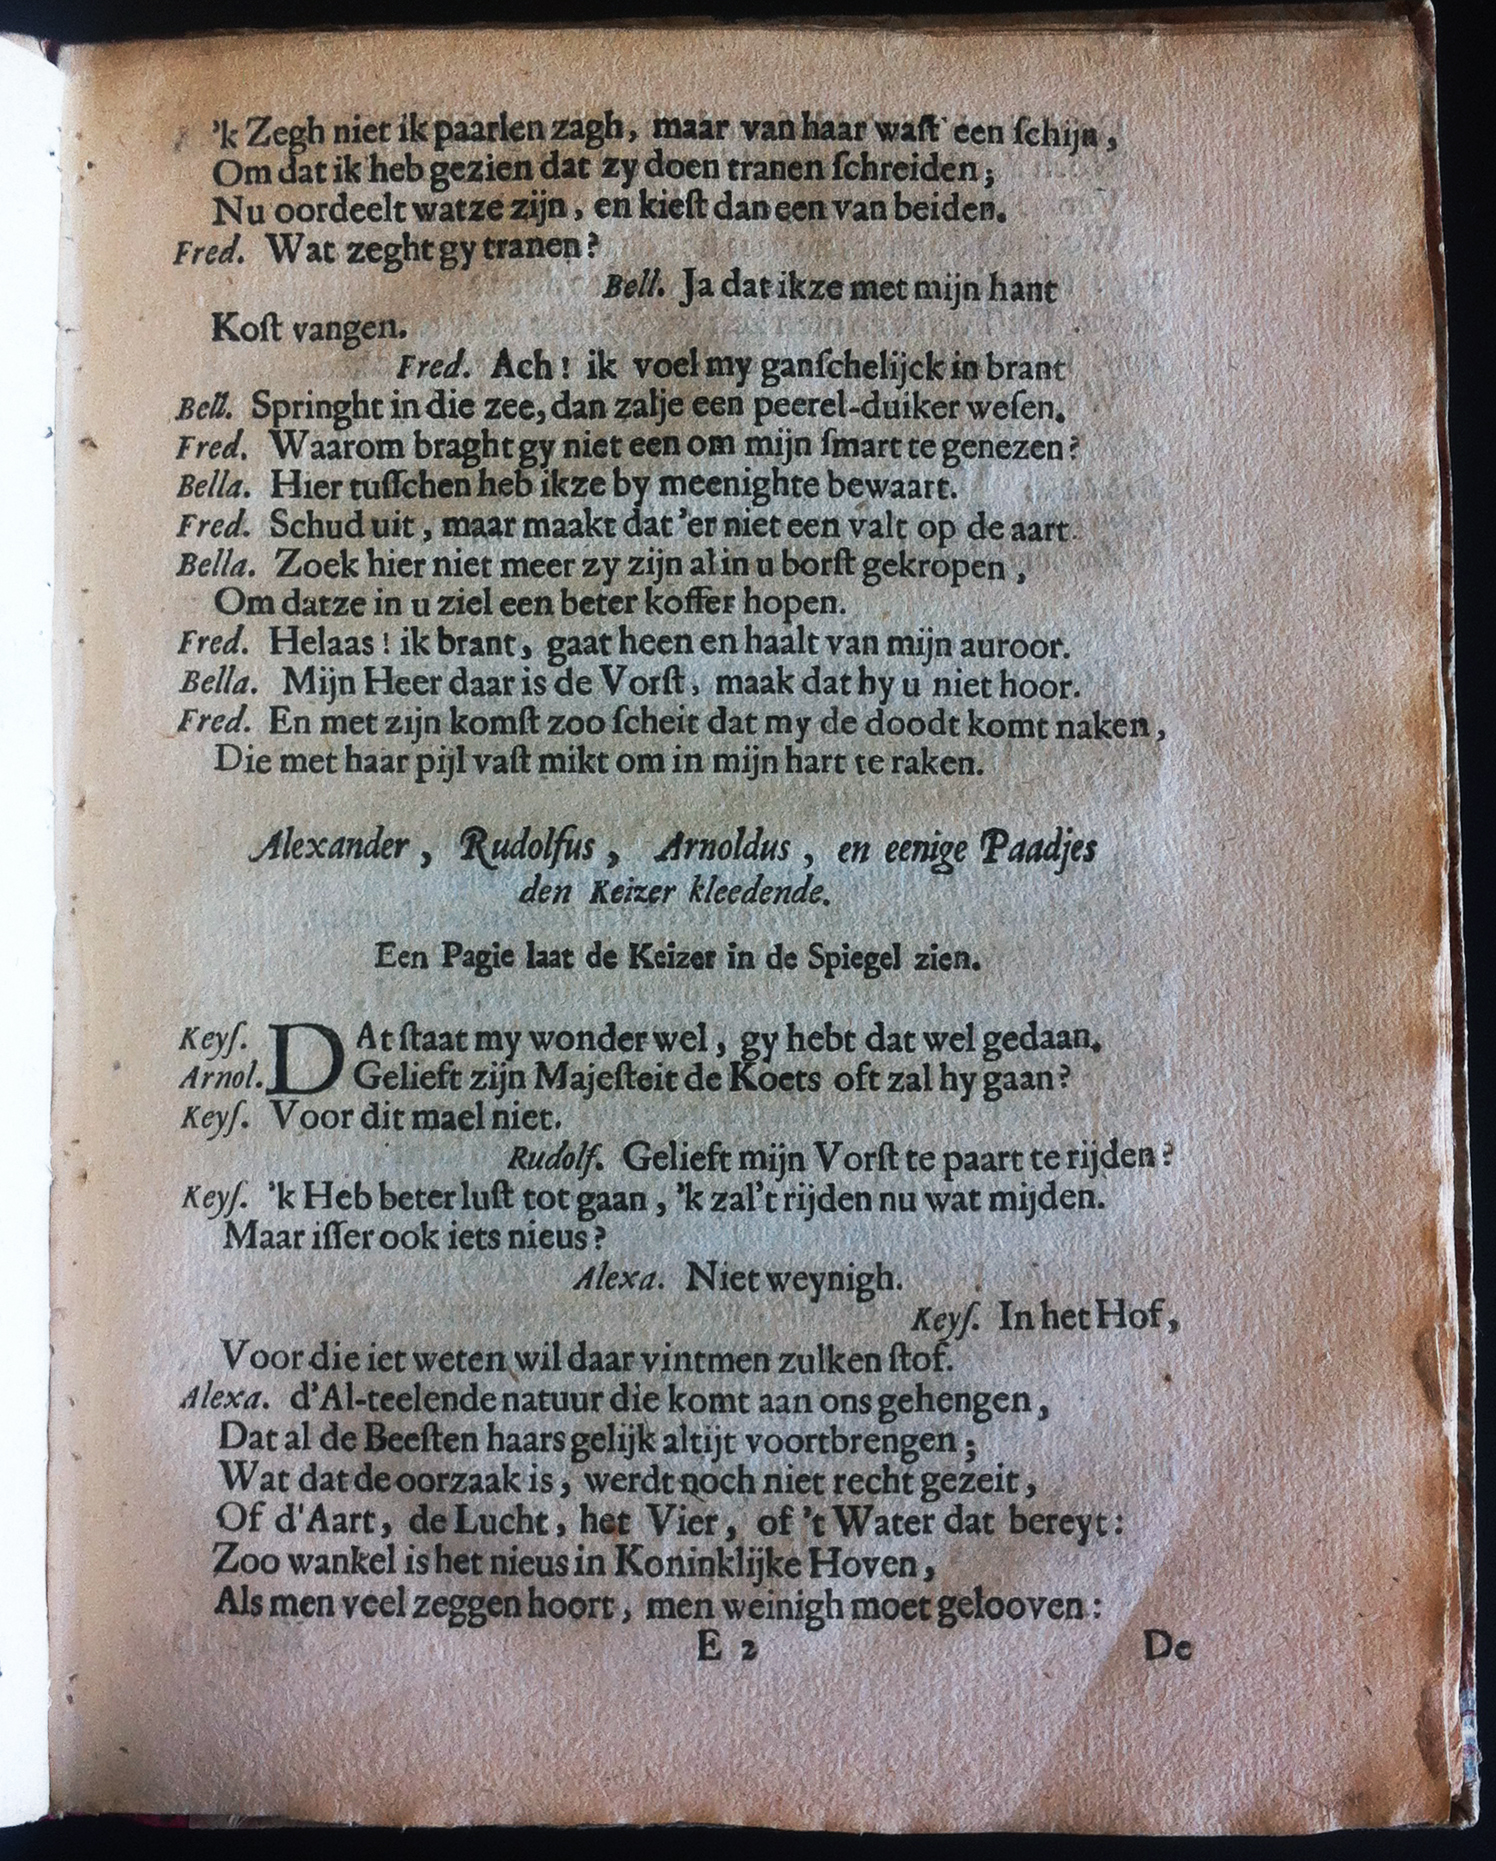 'k Zegh niet ik paarlen zagh, maar van haar waſt een ſchijn,
Om dat ik heb gezien dat zy doen tranen ſchreiden;
Nu oordeelt watze zijn, en kieſt dan een van beiden.
Fred. Wat zeght gy tranen?
Bell. Ja dat ikze met mijn hant
Koſt vangen.
Fred. Ach! ik voel my ganſchelijck in brant
Bell. Springht in die zee, dan zalje een peerel-duiker weſen.
Fred. Waarom braght gy niet een om mijn ſmart te genezen?
Bella. Hier tuſſchen heb ikze by meenighte bewaart.
Fred. Schud uit, maar maakt dat 'er niet een valt op de aart.
Bella. Zoek hier niet meer zy zijn al in u borſt gekropen,
Om datze in u ziel een beter koffer hopen.
Fred. Helaas! ik brant, gaat heen en haalt van mijn auroor.
Bella. Mijn Heer daar is de Vorſt, maak dat hy u niet hoor.
Fred. En met zijn komſt zoo ſcheit dat my de doodt komt naken,
Die met haar pijl vaſt mikt om in mijn hart te raken.
Alexander, Rudolfus, Arnoldus, en eenige Paadjes
den Keizer kleedende.
Een Pagie laat de Keizer in de Spiegel zien.
Keyſ. DAt ſtaat my wonder wel, gy hebt dat wel gedaan.
Arnol. Gelieft zijn Majeſteit de Koets oft zal hy gaan?
Keyſ. Voor dit mael niet.
Rudolf. Gelieft mijn Vorſt te paart te rijden?
Keyſ. 'k Heb beter luſt tot gaan, 'k zal't rijden nu wat mijden.
Maar iſſer ook iets nieus?
Alexa. Niet weynigh.
Keyſ. In het Hof,
Voor die iet weten wil daar vintmen zulken ſtof.
Alexa. d'Al-teelende natuur die komt aan ons gehengen,
Dat al de Beeſten haars gelijk altijt voortbrengen;
Wat dat de oorzaak is, werdt noch niet recht gezeit,
Of d'Aart, de Lucht, het Vier, of 't Water dat bereyt:
Zoo wankel is het nieus in Koninklijke Hoven,
Als men veel zeggen hoort, men weinigh moet gelooven:
E 2 De